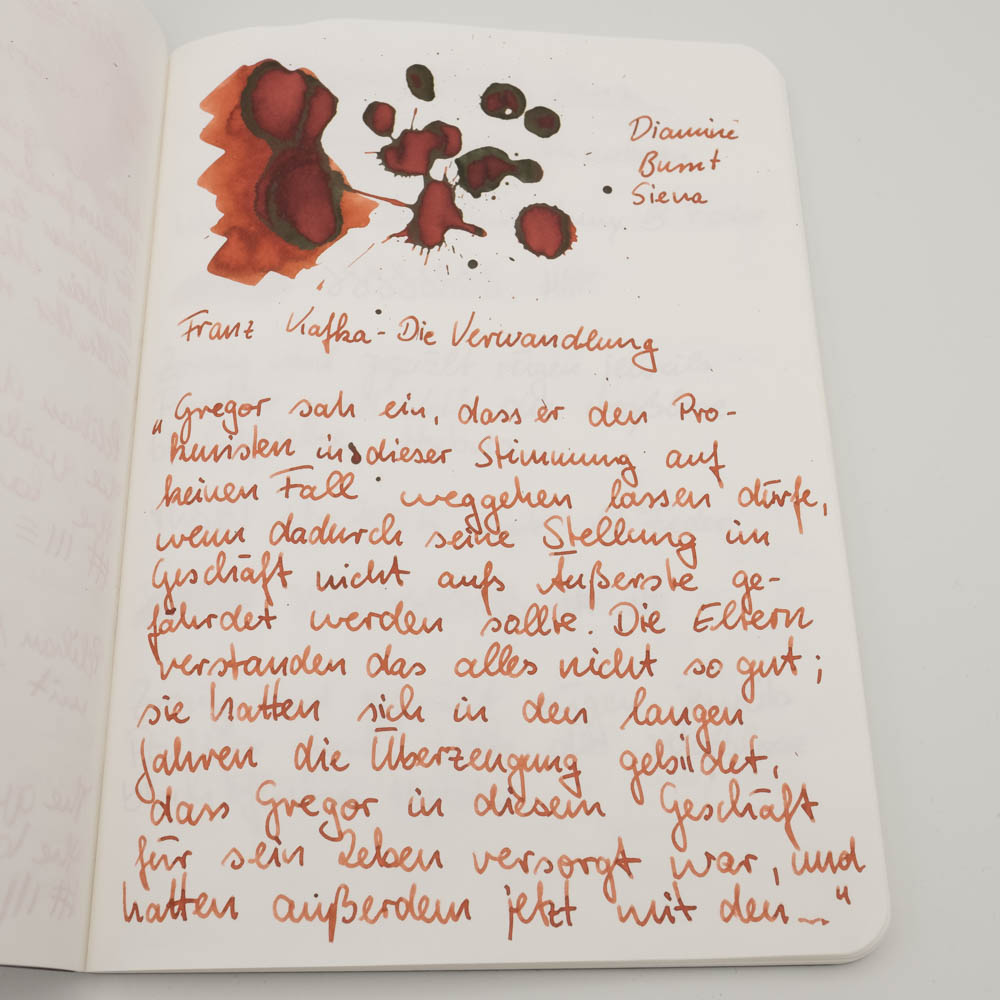 Diamine
Burnt
Siena
Franz Kafka - Die Verwandlung
„Gregor sah ein, dass er den Pro-
kuristen in dieser Stimmung auf
keinen Fall weggehen lassen dürfe,
wenn dadurch seine Stellung im
Geschäft nicht aufs Äußerste ge-
fährdet werden sollte. Die Eltern
verstanden das alles nicht so gut;
sie hatten sich in den langen
Jahren die Überzeugung gebildet,
dass Gregor in diesem Geschäft
für sein Leben versorgt war, und
hatten außerdem jetzt mit den..."